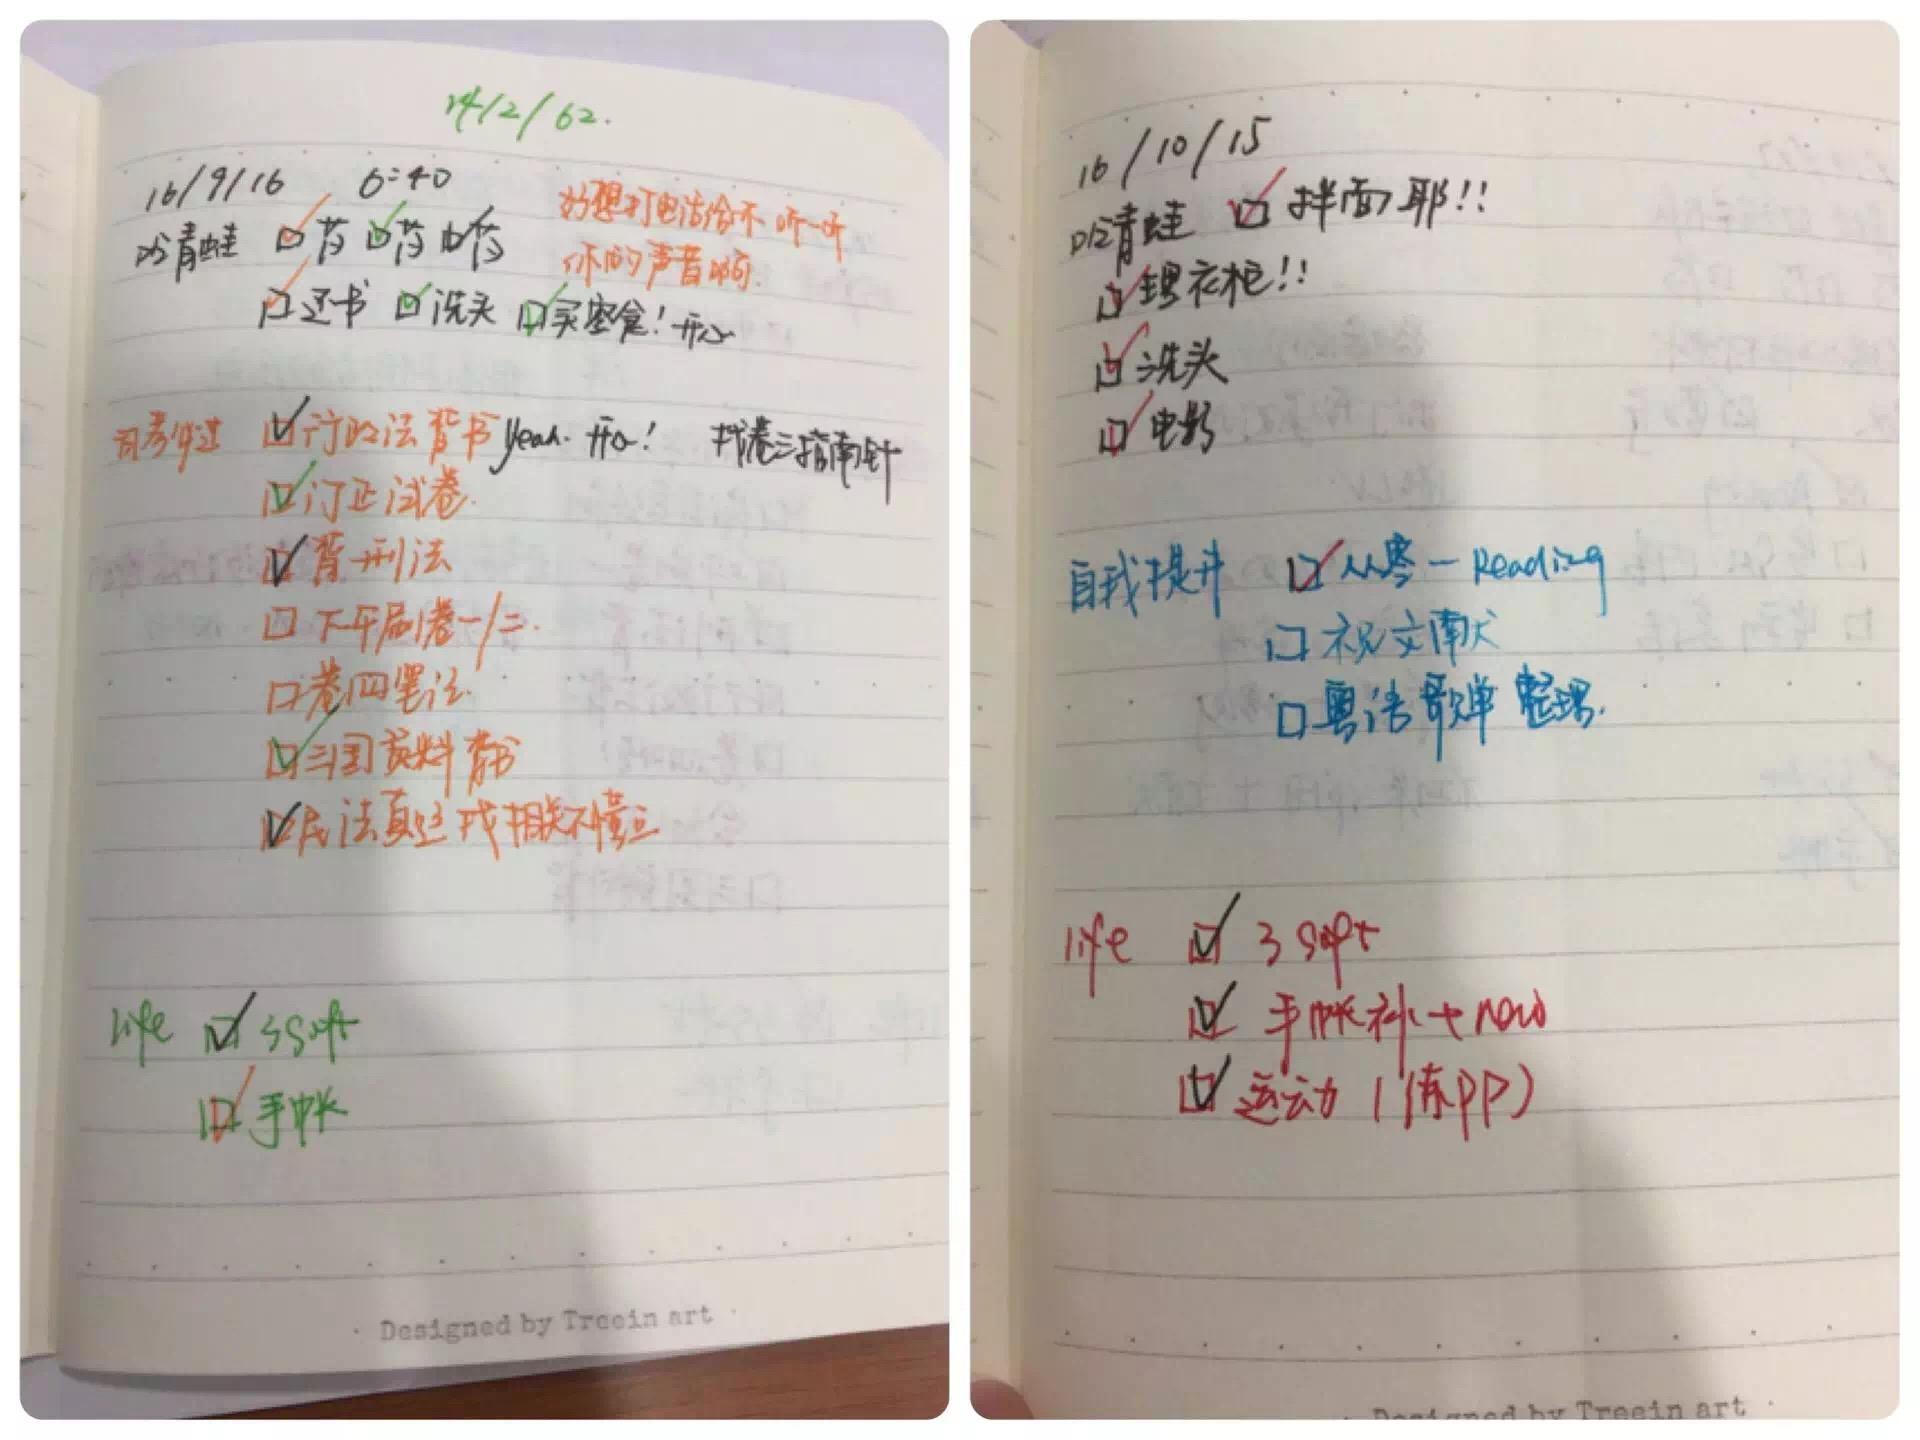 14/2/62.
16/9/16 6:40
吃青蛙 药 药 药
好想打电话给你 听一听
你的声音啊.
还书 洗头 买零食!开心
司考必过 行政法背书 yeah. 开心! 找卷三指南针
订正试卷.
背刑法
下午刷卷一/二.
卷四笔法.
三国资料背书
民法真题 找相关不懂
life 3 soft
手帐
Designed by Treein art
16/10/15
吃青蛙 拌面耶!!
理衣柜!!
洗头
电影
自我提升 从零一 Reading
文献
粤语歌单 整理.
life 3 soft
手帐补+new
运动1(练PP)
Designed by Treein art